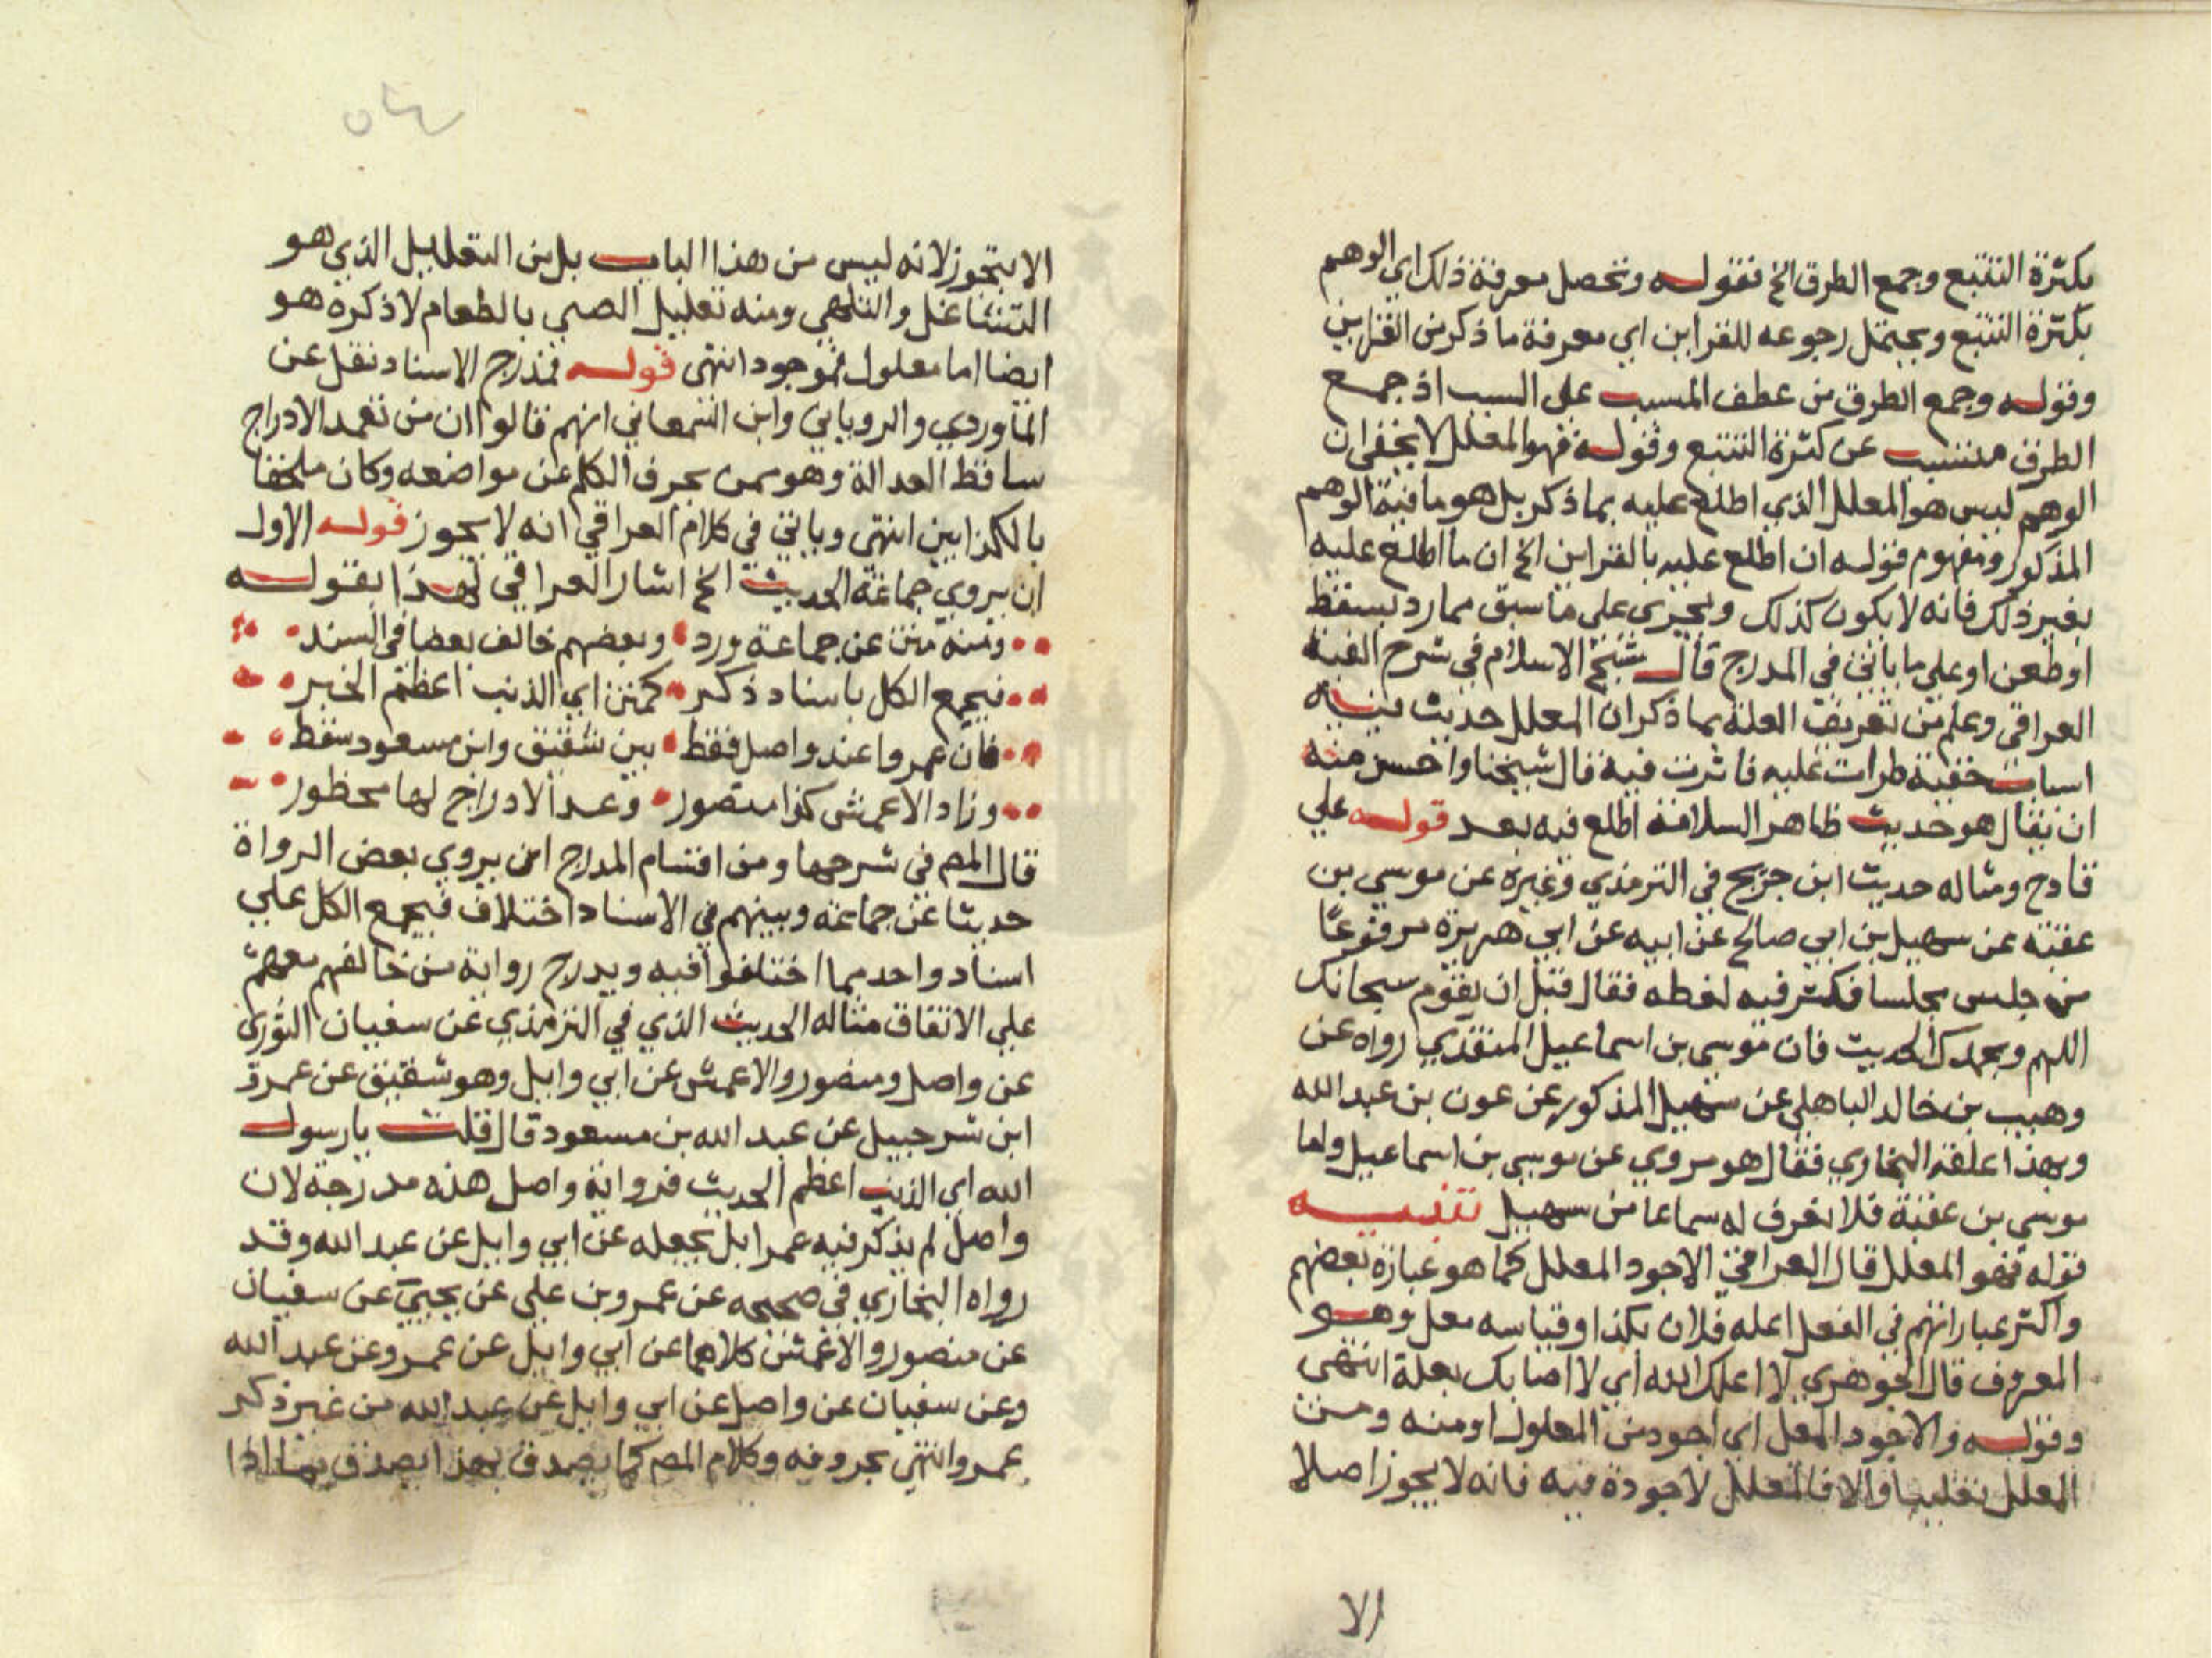 بكثرة التتبع وجمع الطرق الخ فقوله وتحصل معرفة ذلك اي الوهم
بكثرة التتبع ويحتمل رجوعه للقراين اي معرفة ما ذكر من القراين
وقوله وجمع الطرق من عطف المسبب على السبب اذ جمع
الطرق متسبب عن كثرة التتبع وقوله فهو المعلل لا يخفى ان
الوهم ليس هو المعلل الذي اطلع عليه بما ذكر بل هو ما فيه الوهم
المذكور ومفهوم قوله ان اطلع عليه بالقراين الخ ان ما اطلع عليه
بغير ذلك فانه لا يكون كذلك ويجري على ما سبق مما رد بسقط
او طعن او على ما ياتي في المدرج قال شيخ الاسلام في شرح الفية
العراقي وعلم من تعريف العلة بما ذكر ان المعلل حديث فيه
اسباب خفية طرات عليه فاثرت فيه قال شيخنا واحسن منه
ان يقال هو حديث ظاهر السلامة اطلع فيه بعد قوله علي
قادح ومثاله حديث ابن جريج في الترمذي وغيره عن موسي بن
عقبة عن سهيل بن ابي صالح عن ابيه عن ابي هريرة مرفوعا
من جلس مجلسا فكثر فيه لغطه فقال قبل ان يقوم سبحانك
اللهم وبحمدك الحديث فان موسي بن اسماعيل المنقذي رواه عن
وهيب بن خالد الباهلي عن سهيل المذكور عن عون بن عبد الله
وبهذا اعلقه البخاري فقال هو مروي عن موسي بن اسماعيل واما
موسي بن عقبة فلا نعرف له سماعا من سهيل تنبيه
قوله فهو المعلل قال العراقي الاجود المعلل كما هو عبارة بعضهم
واكثر عباراتهم في الفعل اعله فلان بكذا وقياسه معل وهو
المعروف قال الجوهري لا اعلك الله اي لا اصابك بعلة انتهى
وقوله والاجود المعل اي اجود من المعلول او منه ومن
المعلل تغليبا والا فالمعلل لا جودة فيه فانه لا يجوز اصلا
الا
الا بتجوز لانه ليس من هذا الباب بل من التعليل الذي هو
التشاغل والتلهي ومنه تعليل الصبي بالطعام لا ذكره هو
ايضا اما معلول فموجود انتهى قوله فمدرج الاسناد نقل عن
الماوردي والروياني وابن السمعاني انهم قالوا ان من تعمد الادراج
ساقط العدالة وهو ممن يحرف الكلم عن مواضعه وكان ملحقا
بالكذابين انتهى وياتي في كلام العراقي انه لا يجوز قوله الاول
ان يروي جماعة الحديث الخ اشار العراقي لهذا بقوله
ومنه متن عن جماعة ورد وبعضهم خالف بعضا في السند
فيجمع الكل باسناد ذكر كمتن اي الذنب اعظم الخبر
فان عمروا عند واصل فقط بين شقيق وابن مسعود سقط
وزاد الاعمش كذا منصور وعمد الادراج لها محظور
قال المص في شرحها ومن اقسام المدرج ان يروي بعض الرواة
حديثا عن جماعة وبينهم في الاسناد اختلاف فيجمع الكل علي
اسناد واحد مما اختلفوا فيه ويدرج رواية من خالفهم معهم
علي الاتفاق مثاله الحديث الذي في الترمذي عن سفيان الثوري
عن واصل ومنصور والاعمش عن ابي وايل وهو شقيق عن عمرو
ابن شرحبيل عن عبد الله بن مسعود قال قلت يا رسول
الله اي الذنب اعظم الحديث فرواية واصل هذه مدرجة لان
واصل لم يذكر فيه عمر ابل يجعله عن ابي وايل عن عبد الله وقد
رواه البخاري في صحيحه عن عمرو بن علي عن يحيي عن سفيان
عن منصور والاعمش كلاهما عن ابي وايل عن عمرو عن عبد الله
وعن سفيان عن واصل عن ابي وايل عن عبد الله من غير ذكر
عمرو انتهى بحروفه وكلام المص كما يصدق بهذا يصدق بما اذا